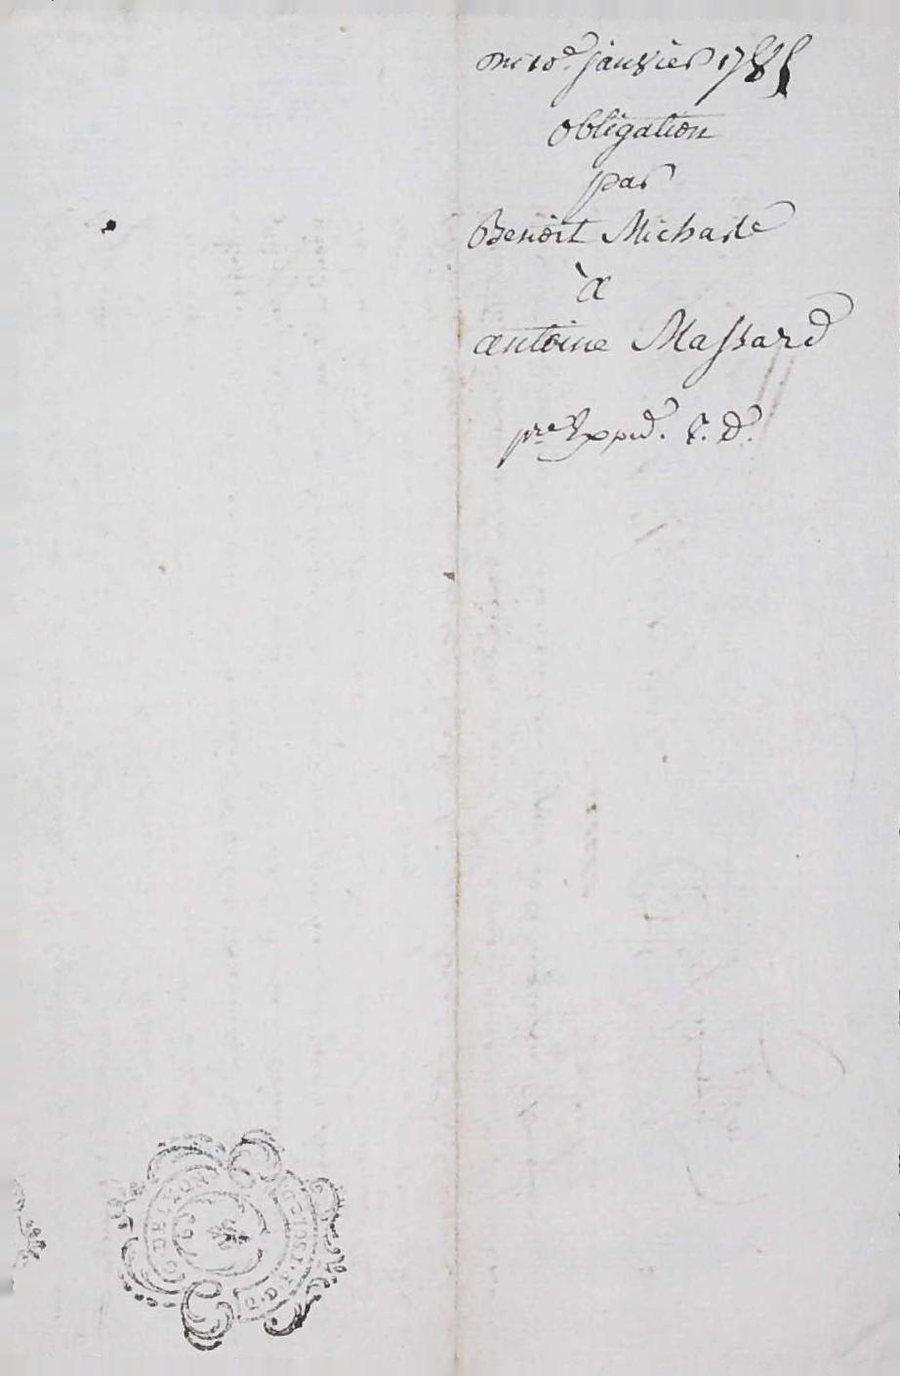 10e janvier 1785
obligation
par
Benoit Micharle
à
antoine Massard
pre Expéd.